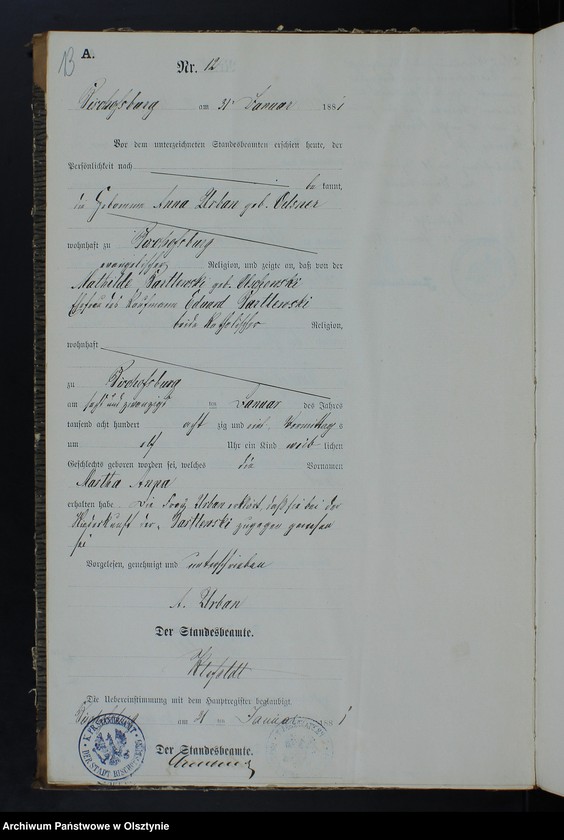 13
A.
Nr. 12
Bischofsburg am 31 Januar 1881
Vor dem unterzeichneten Standesbeamten erschien heute, der
Persönlichkeit nach
be kannt,
die Hebamme Anna Urban geb. Oelsner
wohnhaft zu Bischofsburg
evangelischer Religion, und zeigte an, daß von der
Mathilde geb.
Ehefrau des Kaufmann Eduard
beide katholischer Religion,
wohnhaft
zu Bischofsburg
am sechs und zwanzigsten Januar des Jahres
tausend acht hundert acht zig und eins Vormittags
um elf Uhr ein Kind weib lichen
Geschlechts geboren worden sei, welches die Vornamen
Martha Anna
erhalten habe. Die Frau Urban erklärt, daß sie bei der
Niederkunft der zugegen gewesen
sei
Vorgelesen, genehmigt und unterschrieben
A. Urban
Der Standesbeamte.
Die Uebereinstimmung mit dem Hauptregister beglaubigt
Bischofsburg am 31 ten Januar 1881
Der Standesbeamte.
K. PR. STANDESAMT
DER STADT
Archiwum Państwowe w Olsztynie